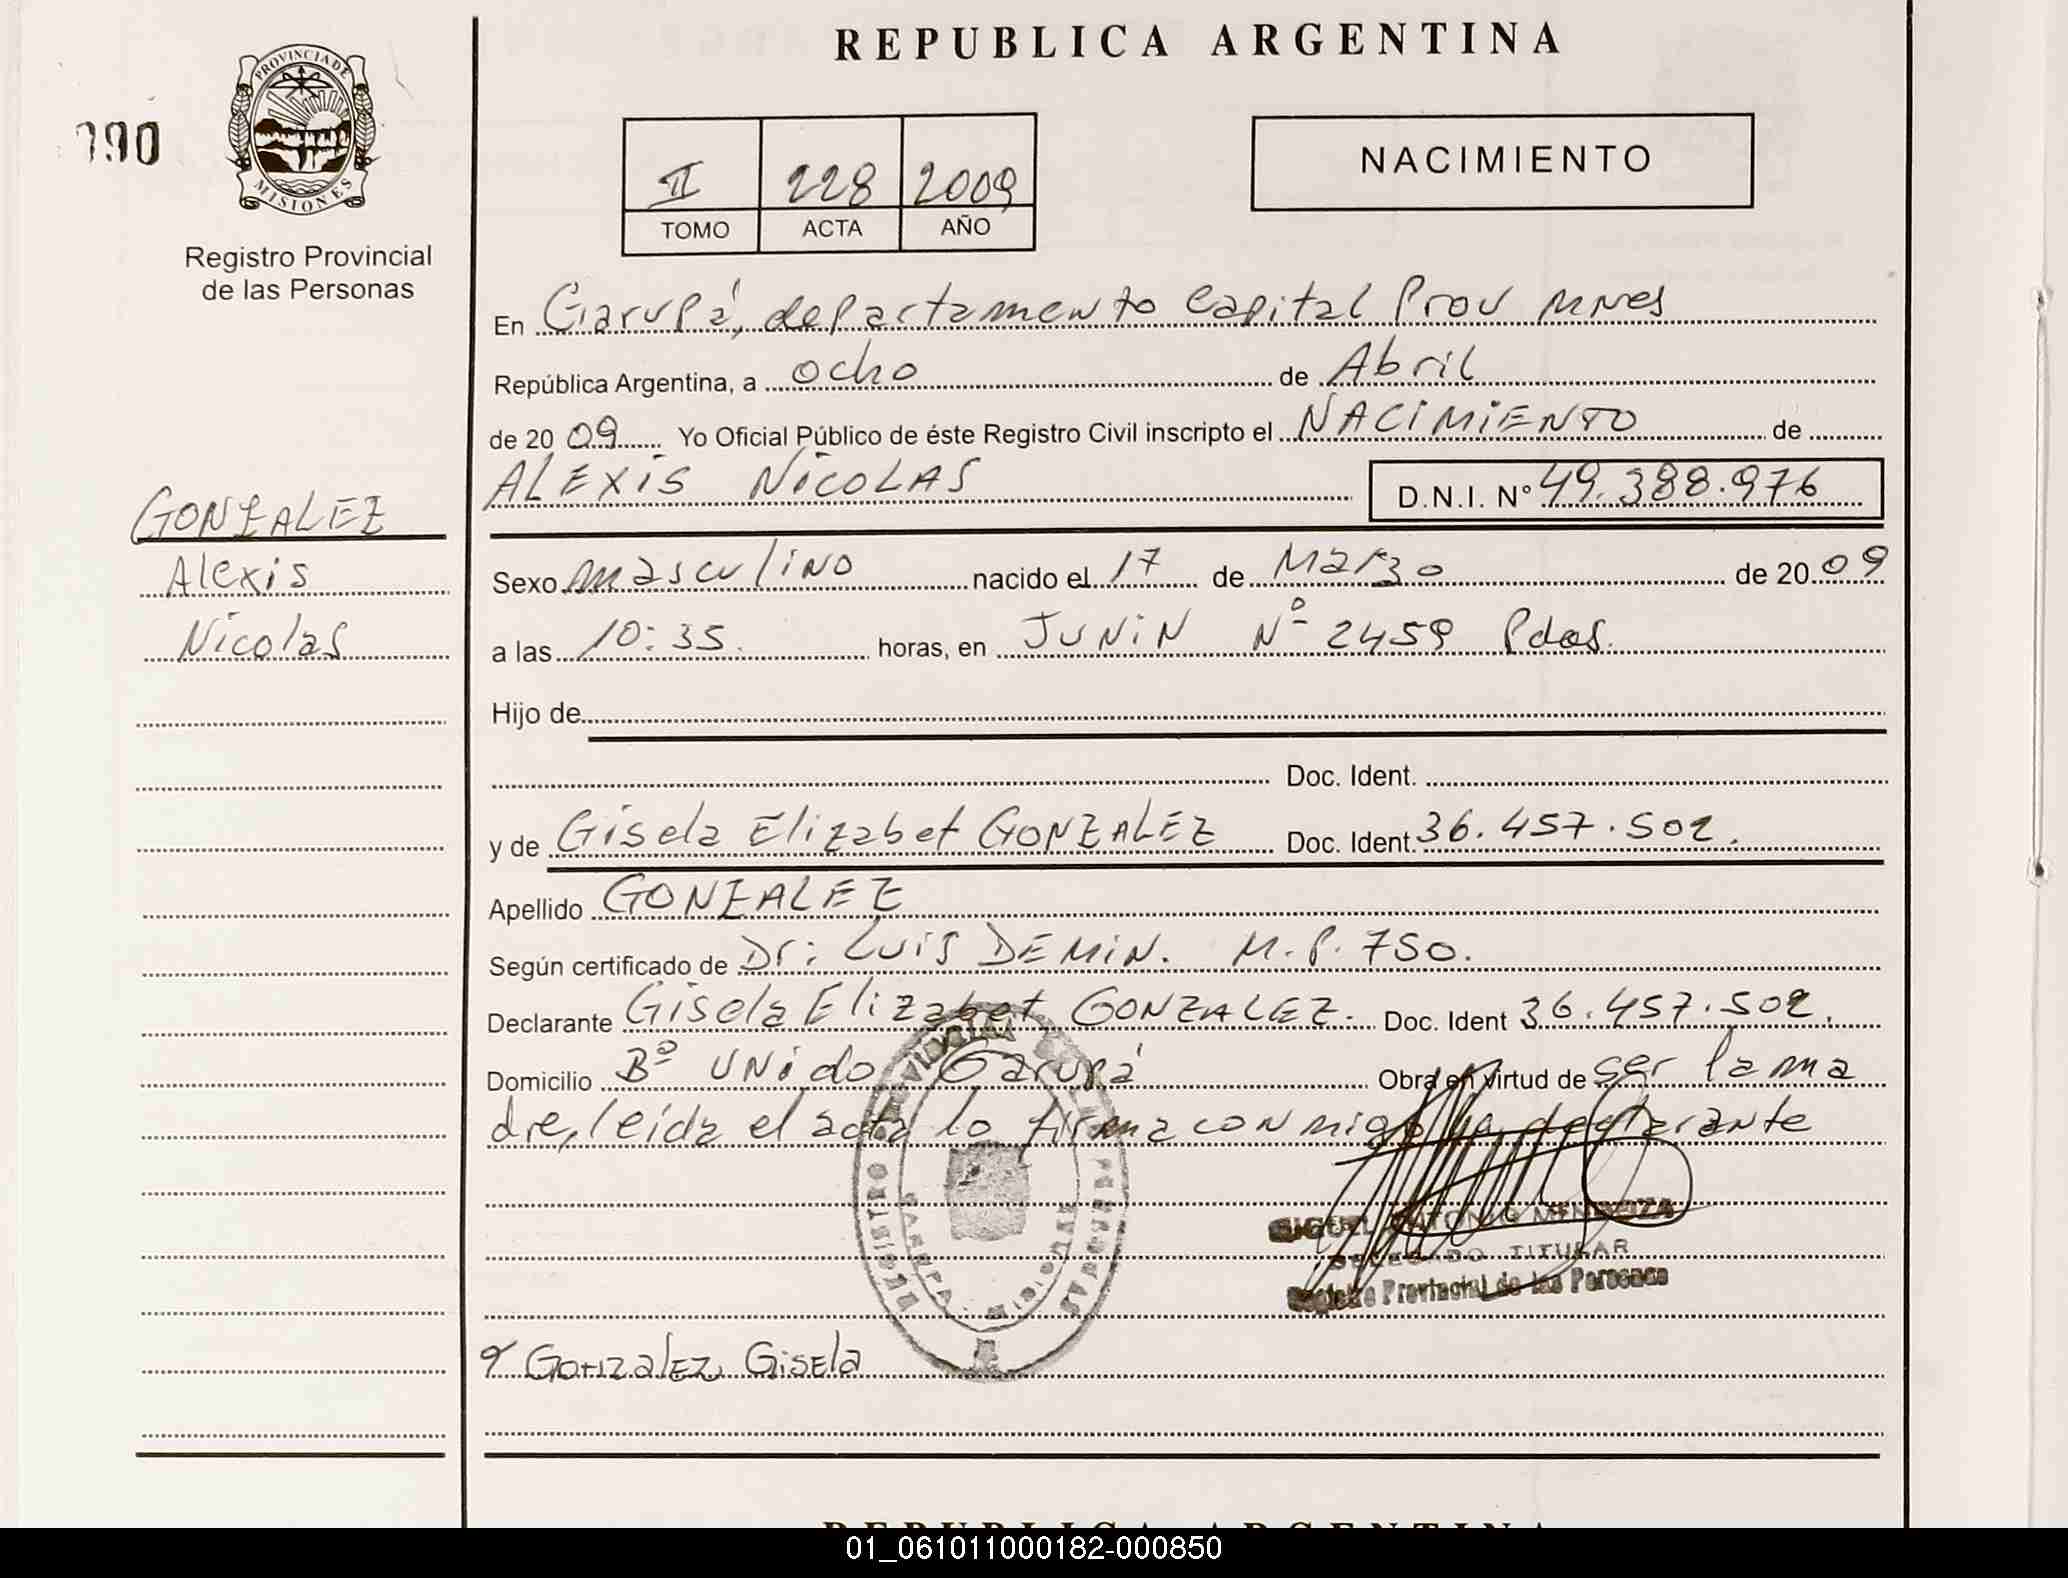 REPUBLICA ARGENTINA
PROVINCIA DE
MISIONES
Registro Provincial
de las Personas
II 228 2009
TOMO ACTA AÑO
NACIMIENTO
En Garupá, departamento Capital Prov Mnes
República Argentina, a ocho de Abril
de 2009 Yo Oficial Público de éste Registro Civil inscripto el NACIMIENTO de
ALEXIS NICOLAS D.N.I. Nº 49.388.976
GONZALEZ
Alexis
Nicolas
Sexo masculino nacido el 17 de Marzo de 2009
a las 10:35 horas, en JUNIN Nº 2459 Pdas.
Hijo de
Doc. Ident.
y de Gisela Elizabet GONZALEZ Doc. Ident. 36.457.502.
Apellido GONZALEZ
Según certificado de Dr: LUIS DEMIN. M.P. 750.
Declarante Gisela Elizabet GONZALEZ. Doc. Ident 36.457.502.
Domicilio Bº UNido Garupá Obra en virtud de ser la ma
dre, leida el acta lo firma conmigo la declarante
MIGUEL ANTONIO MENDOZA
DELEGADO TITULAR
Registro Provincial de las Personas
Gonzalez Gisela
REPUBLICA ARGENTINA
01_061011000182-000850